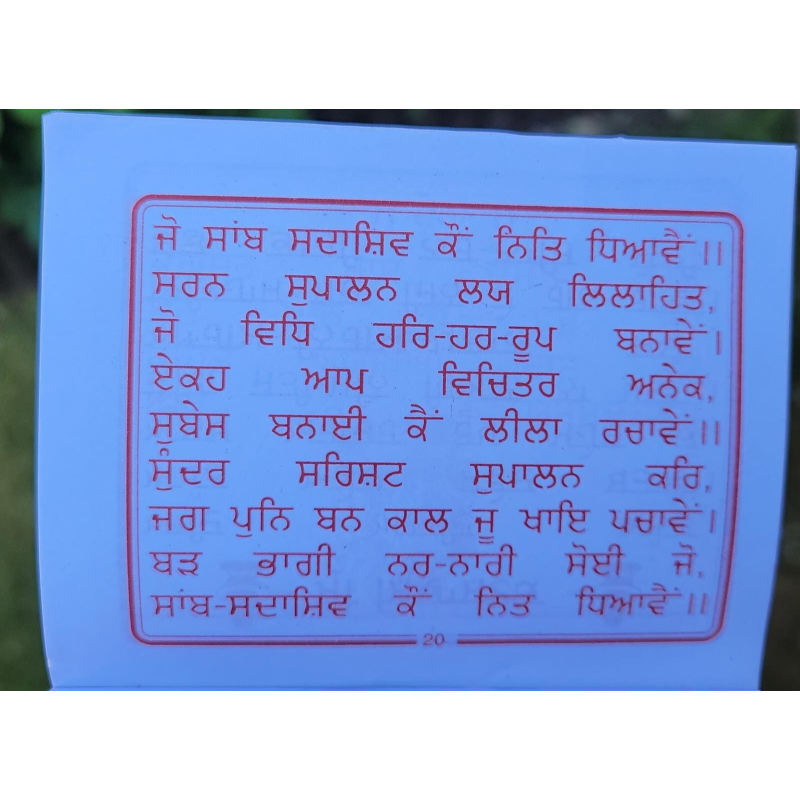 ਜੋ ਸਾਂਬ ਸਦਾਸ਼ਿਵ ਕੌਂ ਨਿਤਿ ਧਿਆਵੈਂ ॥
ਸਰਨ ਸੁਪਾਲਨ ਲਯ ਲਿਲਾਹਿਤ,
ਜੋ ਵਿਧਿ ਹਰਿ-ਹਰ-ਰੂਪ ਬਨਾਵੇਂ।
ਏਕਹ ਆਪ ਵਿਚਿਤਰ ਅਨੇਕ,
ਸੁਬੇਸ ਬਨਾਈ ਕੈਂ ਲੀਲਾ ਰਚਾਵੇਂ॥
ਸੁੰਦਰ ਸਰਿਸ਼ਟ ਸੁਪਾਲਨ ਕਰਿ,
ਜਗ ਪੁਨਿ ਬਨ ਕਾਲ ਜੂ ਖਾਇ ਪਚਾਵੇਂ।
ਬੜ ਭਾਗੀ ਨਰ-ਨਾਰੀ ਸੋਈ ਜੋ,
ਸਾਂਬ-ਸਦਾਸ਼ਿਵ ਕੌਂ ਨਿਤ ਧਿਆਵੈਂ॥
20